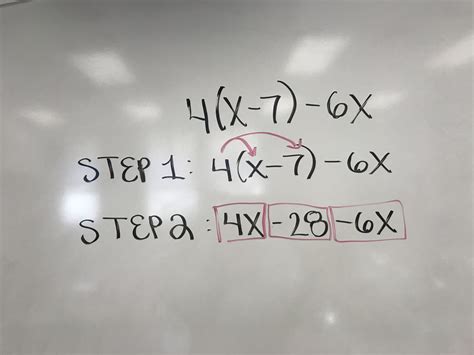 4(X-7)-6X
STEP 1: 4(X-7)-6X
STEP 2: 4X-28-6X